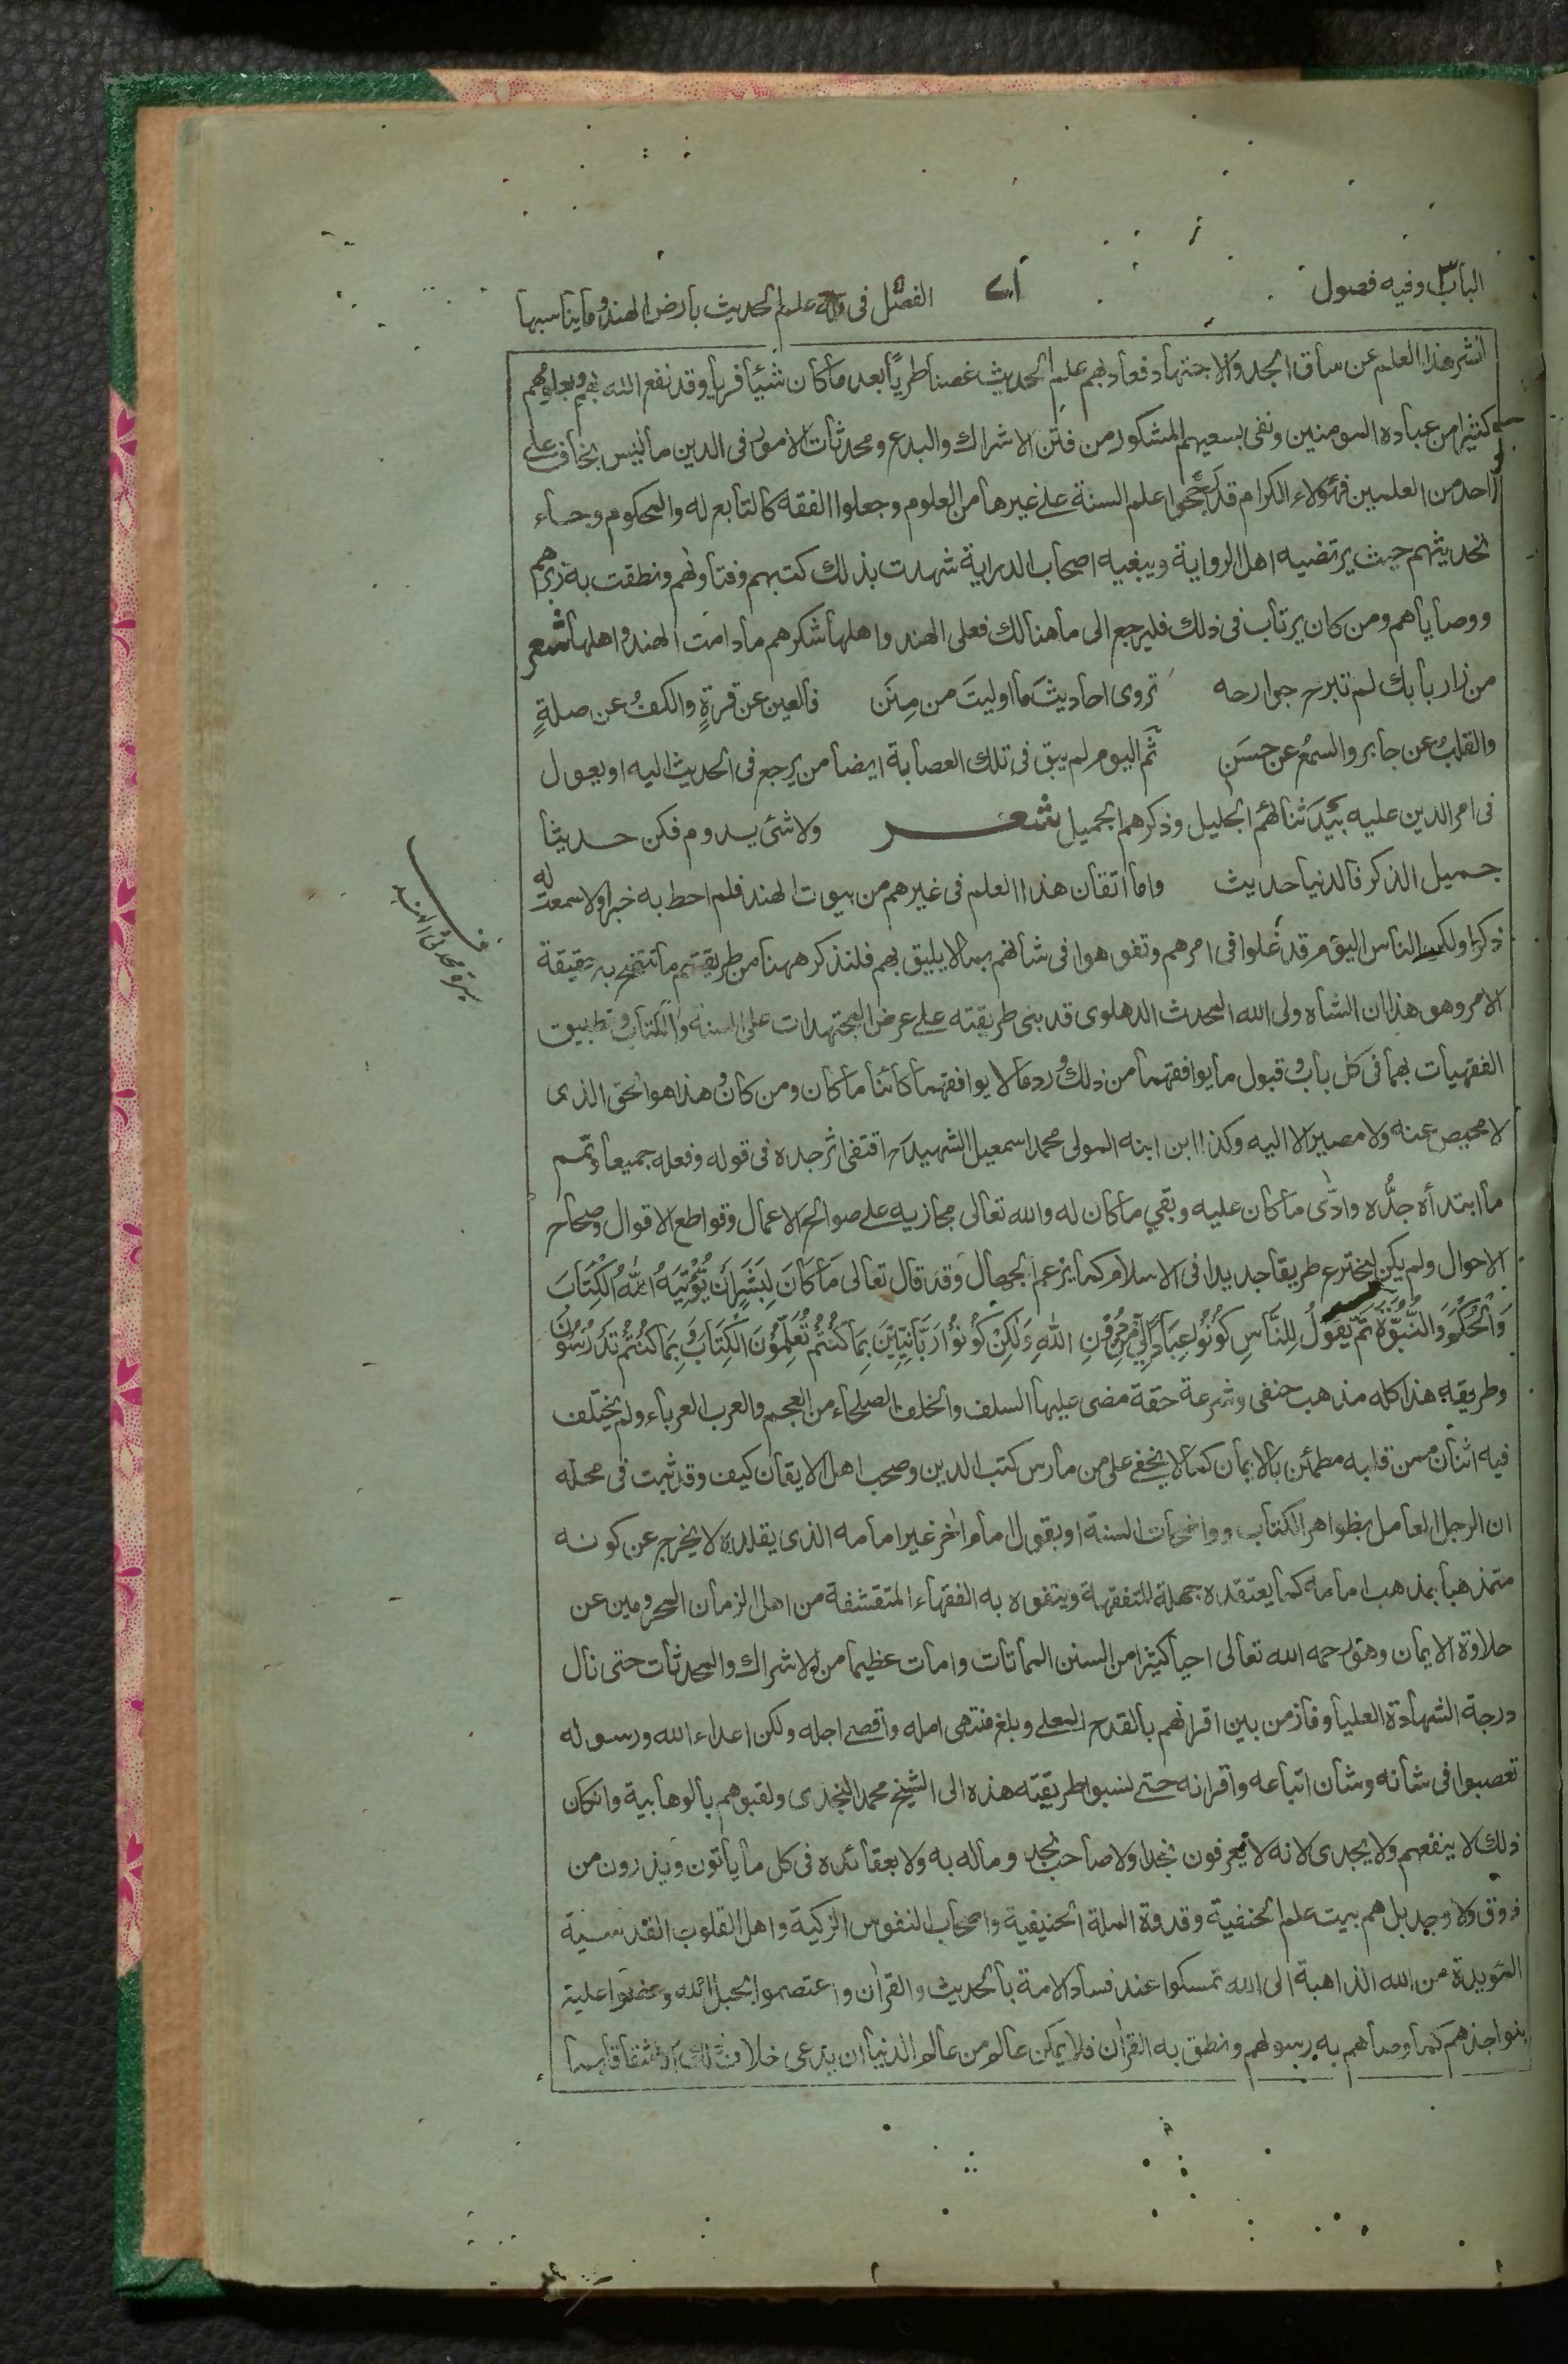 الباب ٣ وفيه فصول
٧١
الفصل فى علم الحديث بارض الهند وما يناسبها
نشر هذا العلم عن ساق الجد والاجتهاد فعاد بهم علم الحديث غصنا طريًا بعد ما كان شيئا فريا وقد نفع الله بهم وبعلومهم
كثيرا من عباده المومنين ونفى بسعيهم المشكور من فتن الاشراك والبدع ومحدثات الامور فى الدين ما ليس بخاف على
احد من العلمين فهؤلاء الكرام قد رجحوا علم السنة على غيرها من العلوم وجعلوا الفقه كالتابع له والمحكوم وجاء
تحديثهم حيث يرتضيه اهل الرواية ويبغيه اصحاب الدراية شهدت بذلك كتبهم وفتاوٰهم ونطقت به زبرهم
ووصاياهم ومن كان يرتاب فى ذلك فليرجع الى ما هنالك فعلى الهند واهلها شكرهم ما دامت الهند واهلها شعر
من زار بابك لم تبرح جوارحه تروى احاديثَ ما اوليتَ من مِنَن فالعين عن قرةٍ والكفُ عن صلةٍ
والقلبُ عن جابر والسمعُ عن حسَن ثم اليوم لم يبق فى تلك العصابة ايضا من يرجع فى الحديث اليه او يعول
فى امر الدين عليه بَيْدَ ثنائهم الجليل وذكرهم الجميل شعر ولا شئ يدوم فكن حديثا
جميل الذكر فالدنيا حديث واما اتقان هذا العلم فى غيرهم من بيوت الهند فلم احط به خبرا ولا سمعت له
ذكرًا ولكن الناس اليوم قد غلوا فى امرهم وتفوهوا فى شانهم بما لا يليق بهم فلنذكر ههنا من طريقتهم ما تتضح به حقيقة
الامر وهو هذا ان الشاه ولى الله المحدث الدهلوى قد بنى طريقته على عرض المجتهدات على السنة والكتاب وتطبيق
الفقهيات بهما فى كل باب وقبول ما يوافقهما من ذلك ورد ما لا يوافقهما كائنا ما كان ومن كان وهذا هو الحق الذى
لا محيص عنه ولا مصير الا اليه وكذا ابن ابنه المولى محمد اسمعيل الشهيد رح اقتفى اثر جده فى قوله وفعله جميعا وتمم
ما ابتدأه جدُّه وادّى ما كان عليه وبقي ما كان له والله تعالى مجازيه على صوالح الاعمال وقواطع الاقوال وصحاح
الاحوال ولم يكن ليخترع طريقا جديدا فى الاسلام كما يزعم الجهال وقد قال تعالى مَا كَانَ لِبَشَرٍ اَنْ يُّؤْتِيَهُ اللهُ الْكِتَابَ
وَالْحُكْمَ وَالنُّبُوَّةَ ثُمَّ يَقُولَ لِلنَّاسِ كُونُوا عِبَادًا لِّي مِنْ دُونِ اللهِ وَلٰكِنْ كُونُوْا رَبَّانِيِّيْنَ بِمَا كُنْتُمْ تُعَلِّمُوْنَ الْكِتَابَ وَبِمَا كُنْتُمْ تَدْرُسُوْنَ
وطريقه هذا كله مذهب حنفى وشرعة حقة مضى عليها السلف والخلف الصلحاء من العجم والعرب العرباء ولم يختلف
فيه اثنان ممن قلبه مطمئن بالايمان كما لا يخفى على من مارس كتب الدين وصحب اهل الايقان كيف وقد ثبت فى محله
ان الرجل العامل بظواهر الكتاب وواضحات السنة او بقول امام اٰخر غير امامه الذى يقلده لا يخرج عن كونه
متمذهبا بمذهب امامه كما يعتقده جهلة المتفقهة ويتفوه به الفقهاء المتقشفة من اهل الزمان المحرومين عن
حلاوة الايمان وهو رحمه الله تعالى احيا كثيرا من السنن المماتات وامات عظيما من الاشراك والمحدثات حتى نال
درجة الشهادة العليا وفاز من بين اقرانهم بالقدح المعلى وبلغ منتهى امله واقصى اجله ولكن اعداء الله ورسوله
تعصبوا فى شانه وشان اتباعه واقرانه حتى نسبوا طريقته هذه الى الشيخ محمد النجدى ولقبوهم بالوهابية وان كان
ذلك لا ينفعهم ولا يجدى لانه لا يعرفون نجدا ولا صاحب نجد وما له به ولا بعقائده فى كل ما ياتون ويذرون من
ذوق ولا وجد بل هم بيت علم الحنفية وقدوة الملة الحنيفية واصحاب النفوس الزكية واهل القلوب القدسية
المؤيدة من الله الذاهبة الى الله تمسكوا عند فساد الامة بالحديث والقراٰن واعتصموا بحبل الله وعضوا عليه
بنواجذهم كما وصاهم به رسولهم ونطق به القراٰن فلا يمكن عالم من عالم الدنيا ان يدعى خلاف